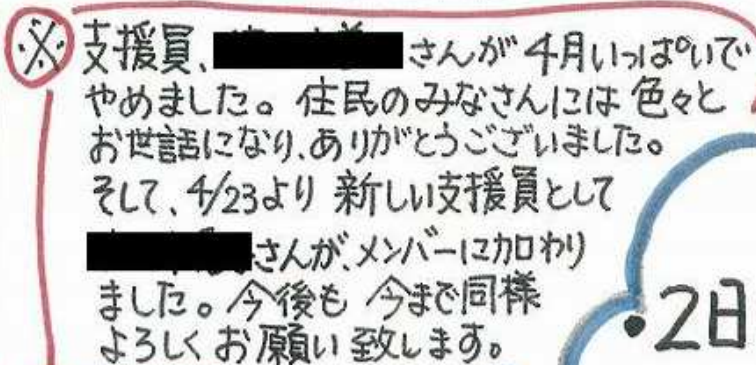 ※ 支援員、さんが4月いっぱいで
やめました。住民のみなさんには色々と
お世話になり、ありがとうございました。
そして、4/23より新しい支援員として
さんが、メンバーに加わり
ました。今後も今まで同様
よろしくお願い致します。
・2日